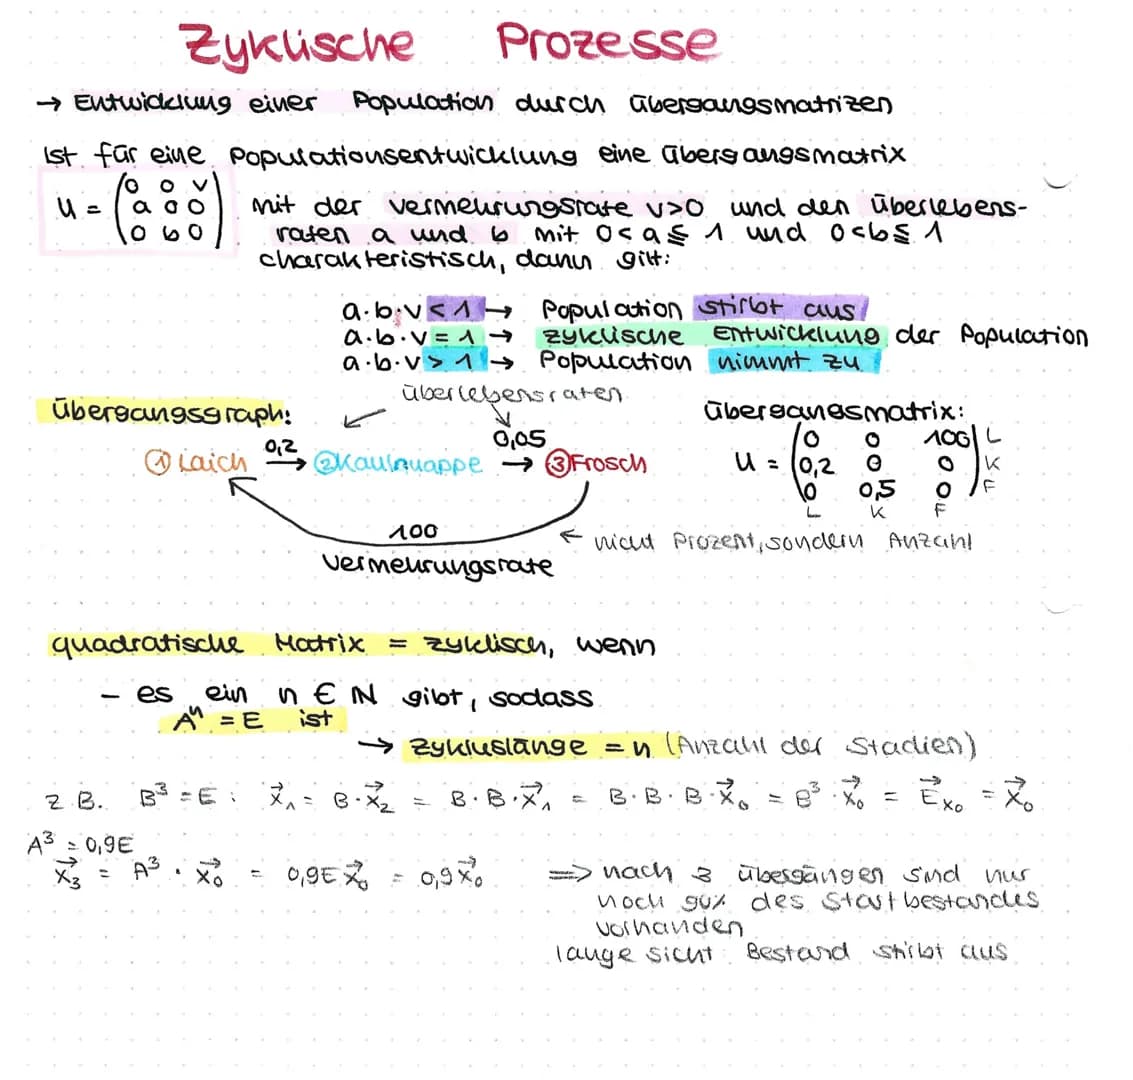 Zyklische Prozesse
→ Entwicklung einer Population durch Übergangsmatrizen
Ist für eine Populationsentwicklung eine Übergangsmatrix
U = (0 0 v
a 0 0
0 b 0)
mit der Vermehrungsrate v>0 und den Überlebens-
raten a und b mit 0<a≤1 und 0<b≤1
charakteristisch, dann gilt:
a·b·v<1 → Population stirbt aus
a·b·v=1 → zyklische Entwicklung der Population
a·b·v>1 → Population nimmt zu
Überlebensraten
Übergangsgraph:
0,2 0,05
① Laich → ② Kaulquappe → ③ Frosch
100
Vermehrungsrate
← nicht Prozent, sondern Anzahl
Übergangsmatrix:
U = (0 0 100 L
0,2 0 0 K
0 0,5 0) F
L K F
quadratische Matrix = zyklisch, wenn
- es ein n ∈ ℕ gibt, sodass
Aⁿ = E ist
→ Zykluslänge = n (Anzahl der Stadien)
z.B. B³ = E : x⃗₁ = B·x⃗₂ = B·B·x⃗₁ = B·B·B·x⃗₀ = B³·x⃗₀ = E⃗x₀ = x⃗₀
A³ = 0,9E
x⃗₃ = A³ · x⃗₀ = 0,9E x⃗₀ = 0,9x⃗₀
⇒ nach 3 Übergängen sind nur
noch 90% des Startbestandes
vorhanden
lange sicht Bestand stirbt aus